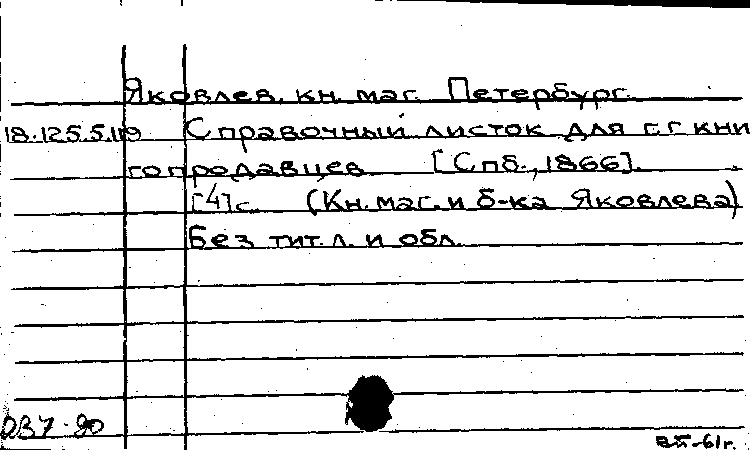 Яковлев, кн. маг. Петербург.
18.125.5.119 Справочный листок для г.г. кни
гопродавцев [Спб., 1866].
[4]с. (Кн. маг. и б-ка Яковлева)
Без тит. л. и обл.
ВП-61г.